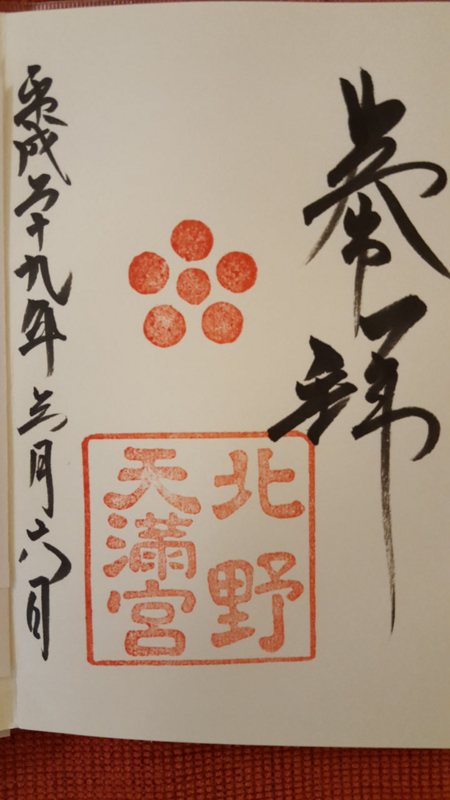 奉拝
北野
天満宮
平成二十九年三月六日